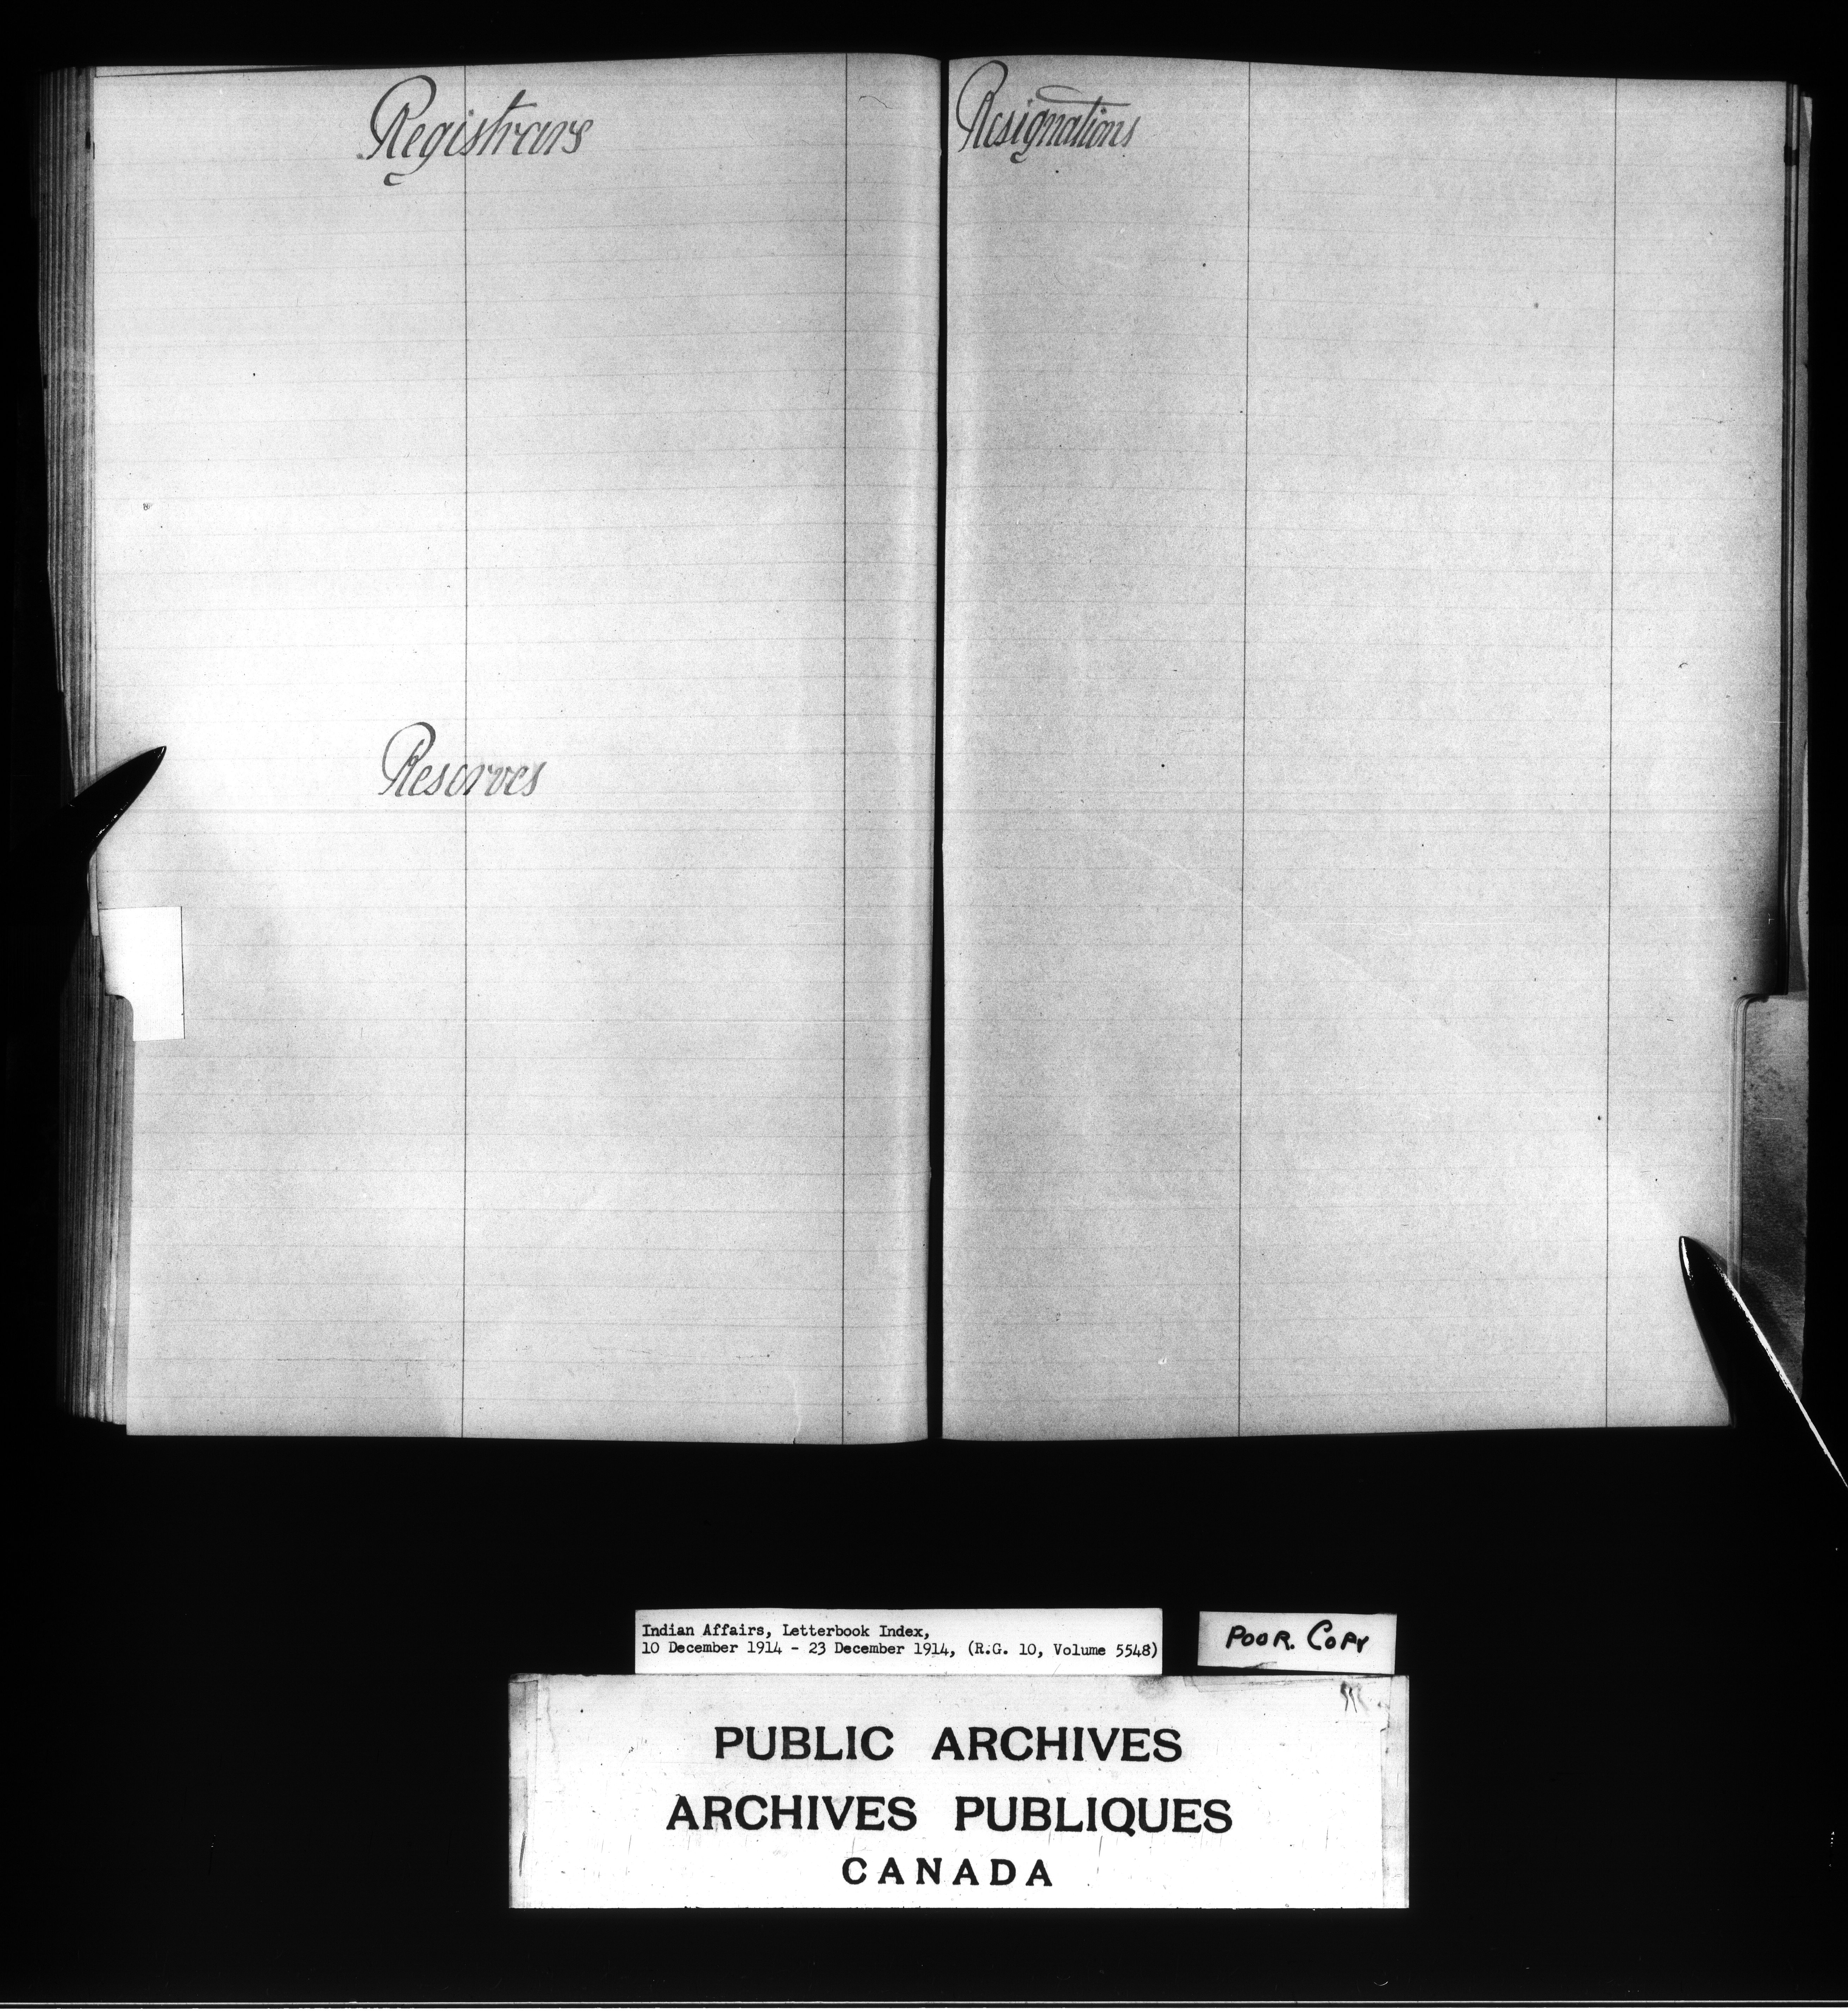 Registrars
Reserves
Resignations
Indian Affairs, Letterbook Index,
10 December 1914 - 23 December 1914, (R.G. 10, Volume 5548)
POOR. COPY
PUBLIC ARCHIVES
ARCHIVES PUBLIQUES
CANADA